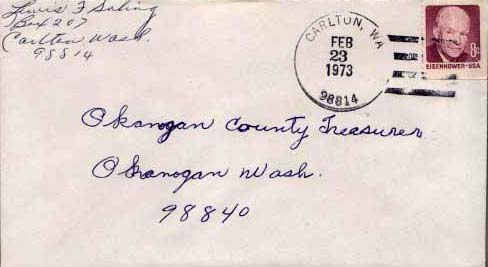 Lewis F Saling
Box 207
Carlton Wash.
98814
CARLTON, WA
FEB
23
1973
98814
8c
EISENHOWER·USA
Okanogan County Treasurer
Okanogan Wash.
98840